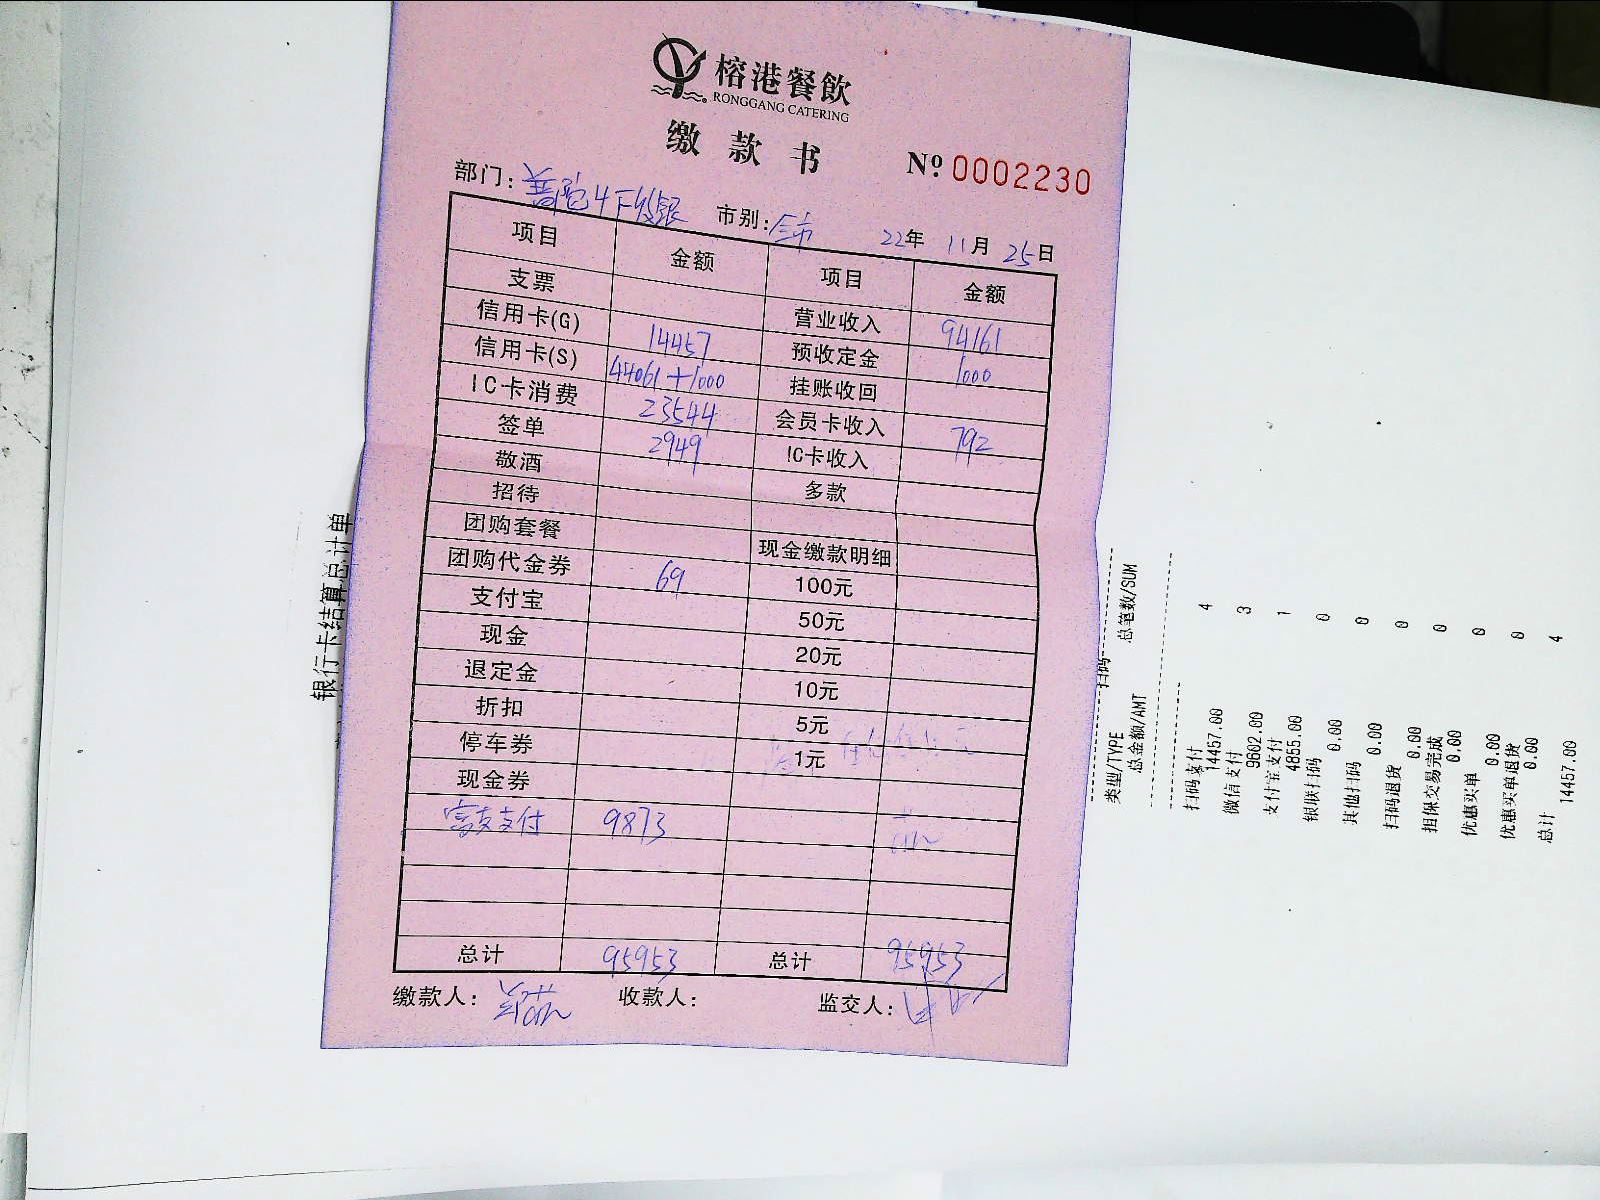 榕港餐飲
RONGGANG CATERING
缴款书
Nº 0002230
部门: 市别: 全市 22年 11月 25日
项目 金额 项目 金额
支票 营业收入 94161
信用卡(G) 14457 预收定金 1000
信用卡(S) 44061+1000 挂账收回
IC卡消费 23544 会员卡收入 792
签单 2949 IC卡收入
敬酒 多款
招待
团购套餐 现金缴款明细
团购代金券 69 100元
支付宝 50元
现金 20元
退定金 10元
折扣 5元
停车券 1元
现金券
支付 9873
总计 95953 总计 95953
缴款人: 收款人: 监交人:
银行卡结算总计单
扫码
类型/TYPE 总笔数/SUM
总金额/AMT
扫码支付 4
14457.00
微信支付 3
9602.00
支付宝支付 1
4855.00
银联扫码 0
0.00
其他扫码 0
0.00
扫码退货 0
0.00
担保交易完成 0
0.00
优惠买单 0
0.00
优惠买单退货 0
0.00
总计 4
14457.00